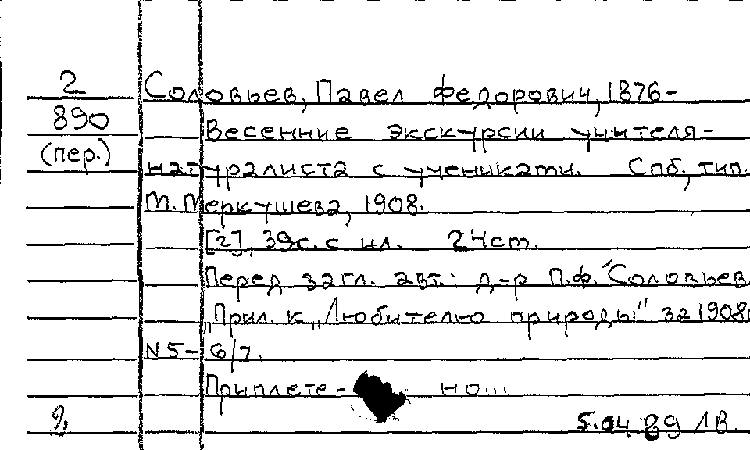 2 Соловьев, Павел Федорович, 1876-
890 Весенние экскурсии учителя-
(пер.) натуралиста с учениками. Спб, тип.
М. Меркушева, 1908.
[2], 39с. с ил. 24 cm.
Перед загл. авт.: д-р П.Ф. Соловьев.
"Прил. к "Любителю природы" за 1908г
N 5-6/7.
Приплете- но...
5.04.89